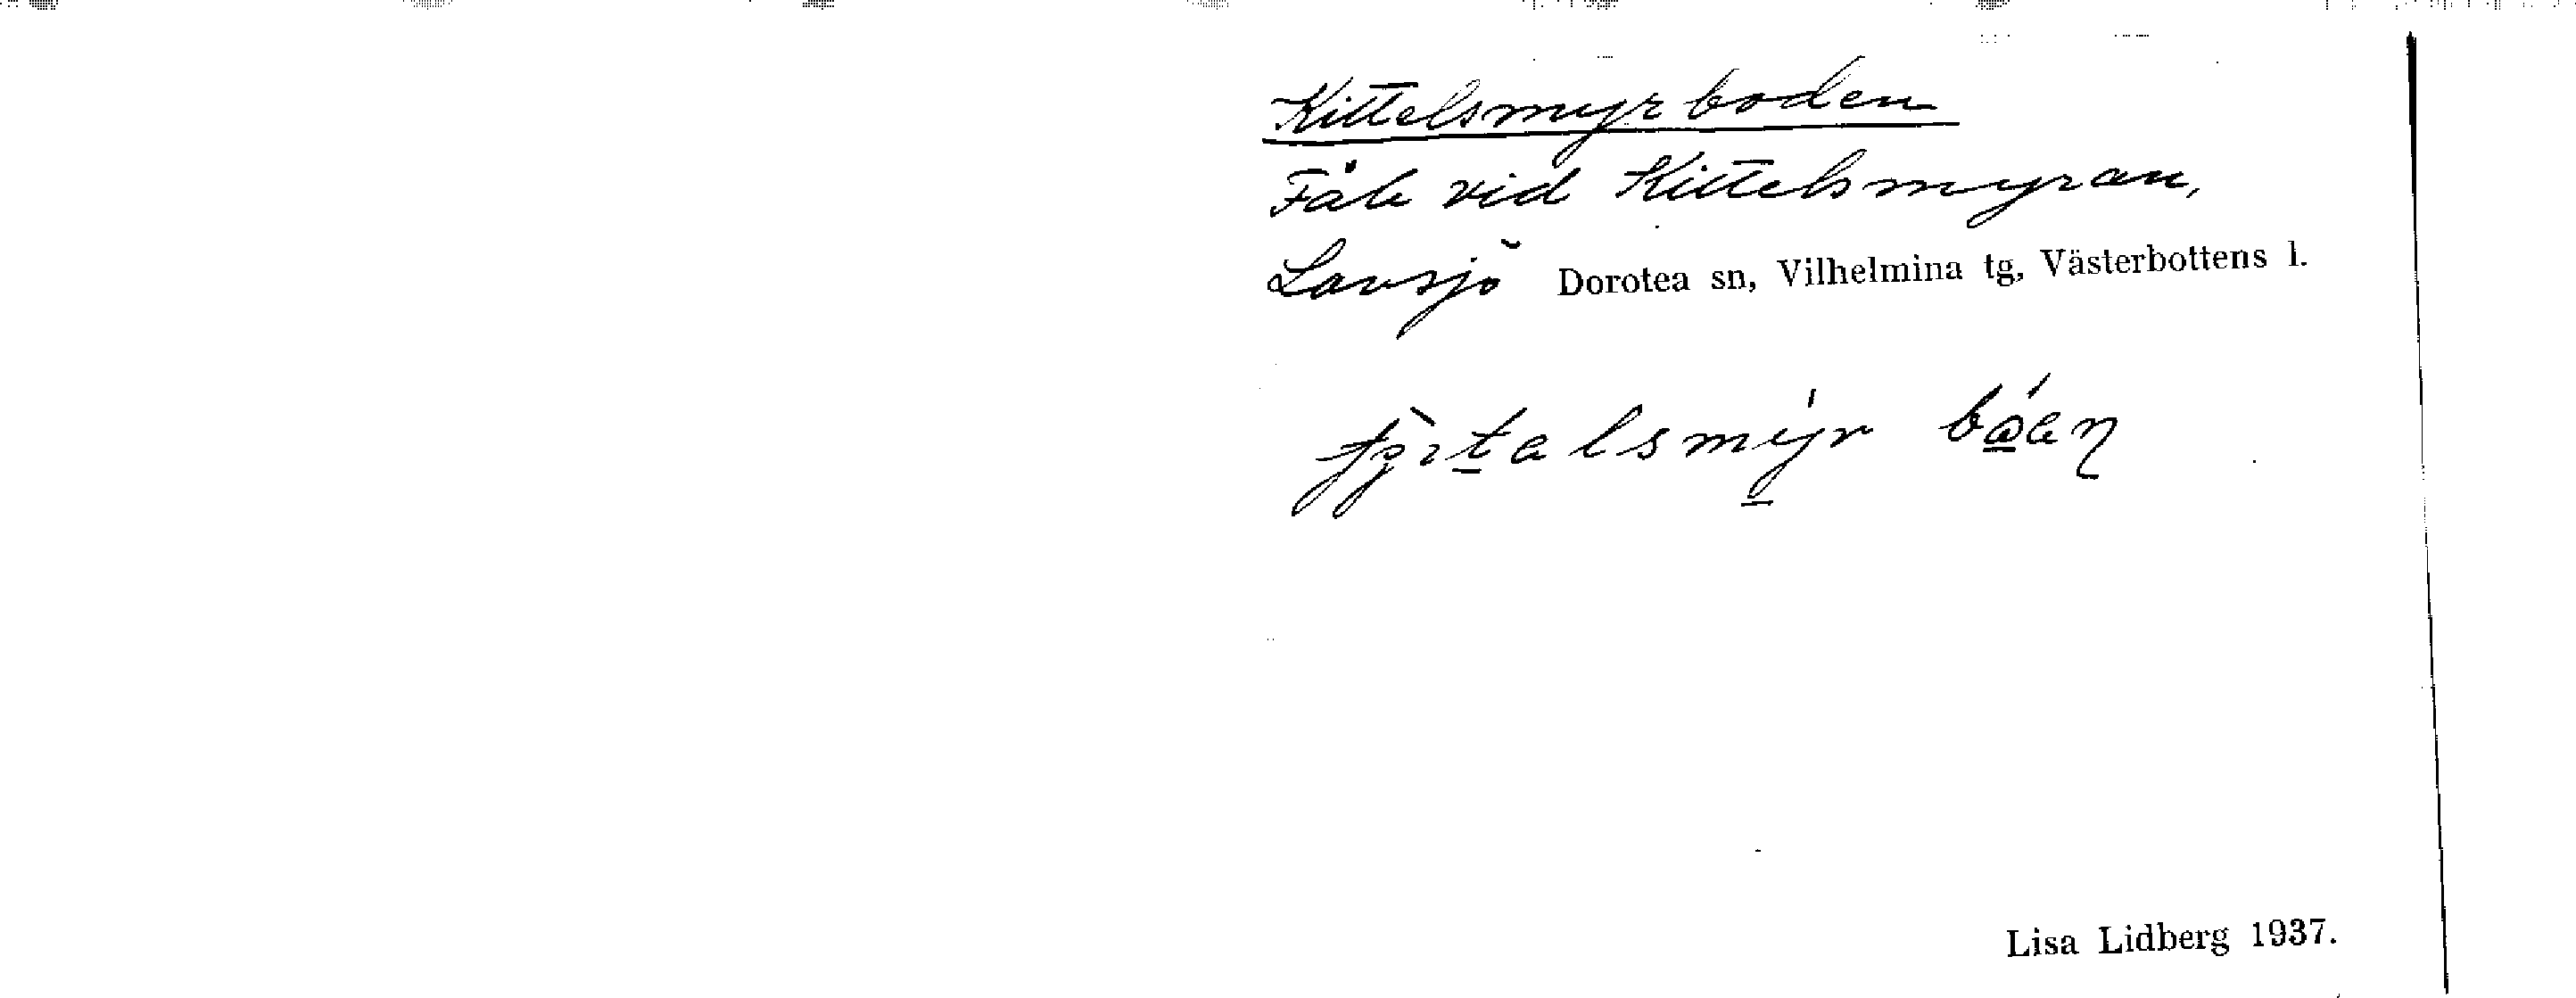 Kittelsmyrboden
Fäb vid Kittelsmyran,
Lavsjö Dorotea sn, Vilhelmina tg, Västerbottens l.
Lisa Lidberg 1937.